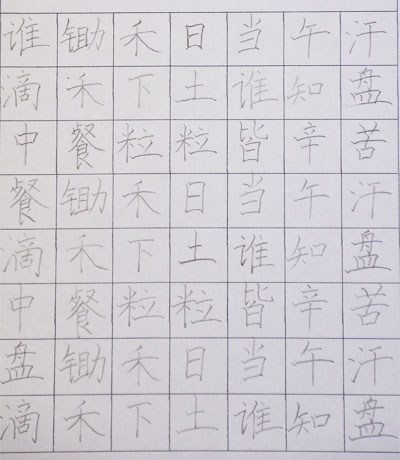 谁锄禾日当午汗
滴禾下土谁知盘
中餐粒粒皆辛苦
餐锄禾日当午汗
滴禾下土谁知盘
中餐粒粒皆辛苦
盘锄禾日当午汗
滴禾下土谁知盘